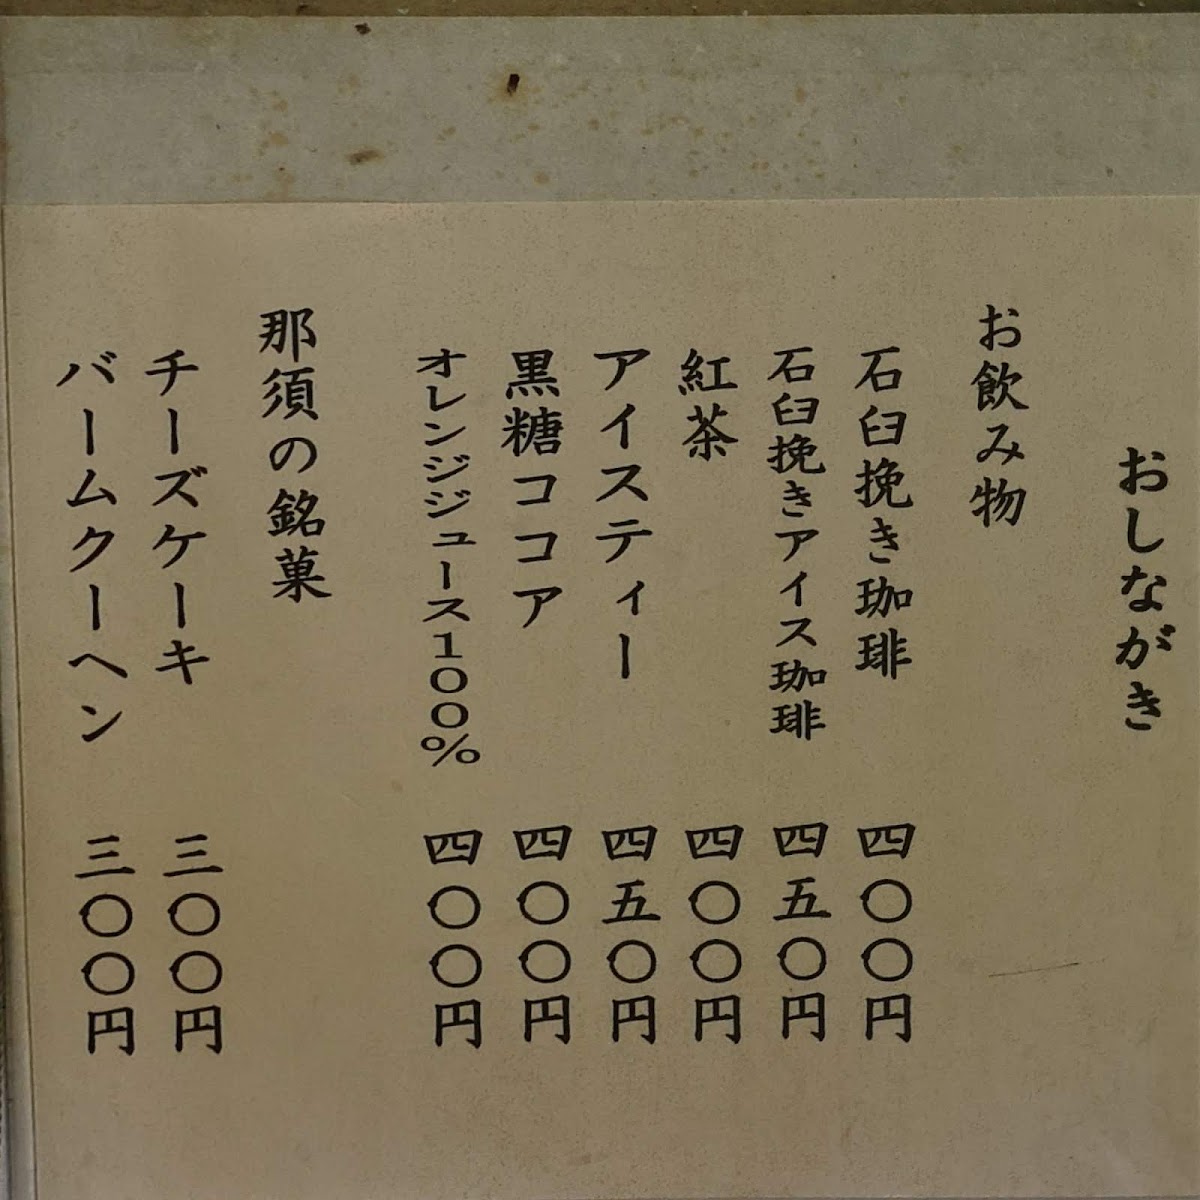 おしながき
お飲み物
石臼挽き珈琲 四〇〇円
石臼挽きアイス珈琲 四五〇円
紅茶 四〇〇円
アイスティー 四五〇円
黒糖ココア 四〇〇円
オレンジジュース100% 四〇〇円
那須の銘菓
チーズケーキ 三〇〇円
バームクーヘン 三〇〇円